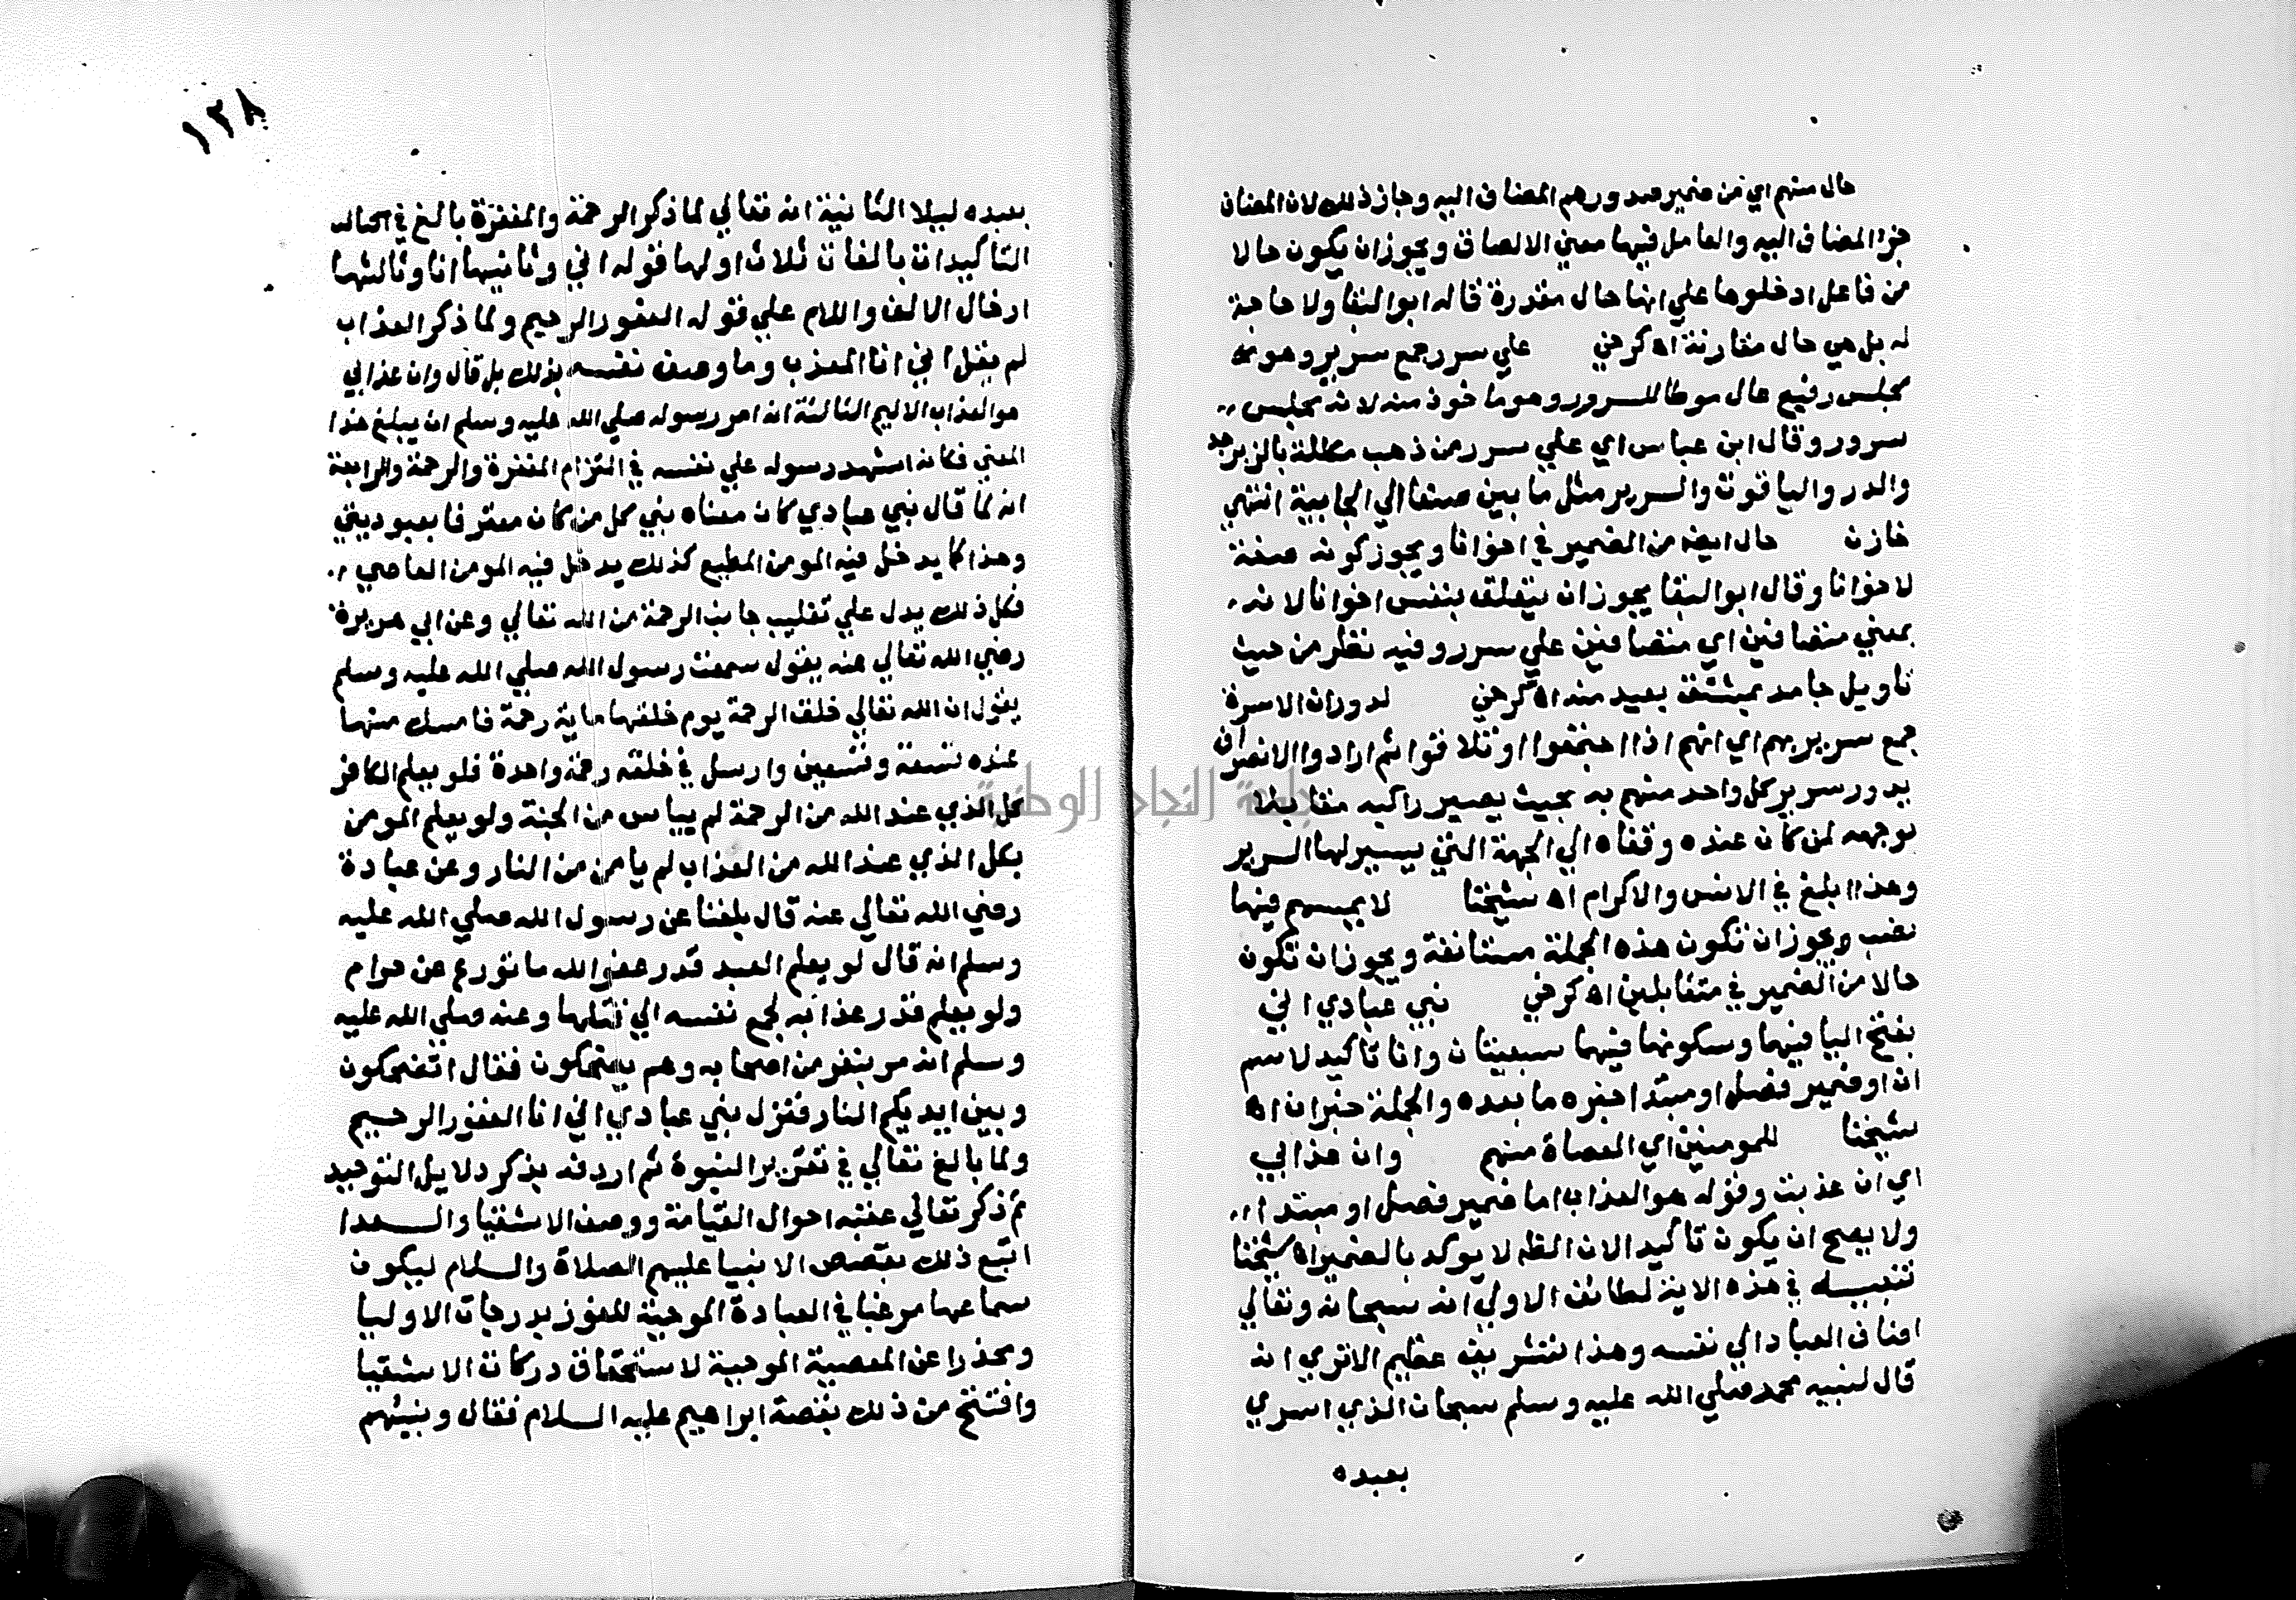 حال منهم اي من ضمير صدورهم المضاف اليه وجاز ذلك لان المضاف
جزء المضاف اليه والعامل فيها معني الالصاق ويجوز ان يكون حالا
من فاعل ادخلوها علي انها حال مقدرة قاله ابو البقا ولا حاجة
له بل هي حال مقارنة اه كرخي علي سرر جمع سرير وهو
مجلس رفيع عال موطا للسرور وهو ماخوذ منه لانه مجلس
سرور وقال ابن عباس اي علي سرر من ذهب مكللة بالزبرجد
والدر والياقوت والسرير مثل ما بين صنعا الي الجابية انتهي
خازن حال ايضا من الضمير في اخوانا ويجوز كونه صفة
لاخوانا وقال ابو البقا يجوز ان يتعلق بنفس اخوانا لانه
بمعني متصافين اي متصافين علي سرر وفيه نظر من حيث
تاويل جامد بمشتق بعيد منه اه كرخي لدوران الاسرة
جمع سرير بهم اي انهم اذا اجتمعوا وتلاقوا ثم ارادوا الانصراف
يدور سرير كل واحد منهم به بحيث يصير راكبه مقابلا
بوجهه لمن كان عنده وقفاه الي الجهة التي يسير لها السرير
وهذا ابلغ في الانس والاكرام اه شيخنا لا يمسهم فيها
نصب ويجوز ان تكون هذه الجملة مستانفة ويجوز ان تكون
حالا من الضمير في متقابلين اه كرخي نبي عبادي اني
بفتح اليا فيهما وسكونها فيهما سبعيتان وانا تاكيد لاسم
ان او ضمير فصل او مبتدا خبره ما بعده والجملة خبر ان اه
شيخنا للمومنين اي العصاة منهم وان عذابي
اي ان عذبت وقوله هو العذاب اما ضمير فصل او مبتدا
ولا يصح ان يكون تاكيد الان الظه لا يوكد بالضمير اه شيخنا
تنبيه في هذه الاية لطائف الاولي انه سبحانه وتعالي
اضاف العباد الي نفسه وهذا تشريف عظيم الا تري انه
قال لنبيه محمد صلي الله عليه وسلم سبحان الذي اسري
بعبده
١٣٨
بعبده ليلا الثانية انه تعالي لما ذكر الرحمة والمغفرة بالغ في
التاكيدات بالفات ثلاث اولها قوله اني وثانيها انا وثالثها
ادخال الالف واللام علي قوله الغفور الرحيم ولما ذكر العذاب
لم يقل اني انا المعذب وما وصف نفسه بذلك بل قال وان عذابي
هو العذاب الاليم الثالثة انه امر رسوله صلي الله عليه وسلم ان يبلغ هذا
المعني فكانه استهد رسوله علي نفسه في التزام المغفرة والرحمة والرابعة
انه لما قال نبي عبادي كان معناه نبي كل من كان معترفا بعبوديتي
وهذا كما يدخل فيه المومن المطيع كذلك يدخل فيه المومن العاصي
فكل ذلك يدل علي تغليب جانب الرحمة من الله تعالي وعن ابي هريرة
رضي الله تعالي عنه يقول سمعت رسول الله صلي الله عليه وسلم
يقول ان الله تعالي خلق الرحمة يوم خلقها ماية رحمة فامسك منها
عنده تسعة وتسعين وارسل في خلقه رحمة واحدة فلو يعلم الكافر
كل الذي عند الله من الرحمة لم يياس من الجنة ولو يعلم المومن
بكل الذي عند الله من العذاب لم يامن من النار وعن عبادة
رضي الله تعالي عنه قال بلغنا عن رسول الله صلي الله عليه
وسلم انه قال لو يعلم العبد قدر عفو الله ما تورع عن حرام
ولو يعلم قدر عذابه لجمع نفسه الي قتلها وعنه صلي الله عليه
وسلم انه مر بنفر من اصحابه وهم يضحكون فقال اتضحكون
وبين ايديكم النار فنزل نبي عبادي اني انا الغفور الرحيم
ولما بالغ تعالي في تقرير النبوة ثم اردفه بذكر دلايل التوحيد
ثم ذكر تعالي عقبه احوال القيامة ووصف الاشقيا والسعدا
اتبع ذلك بقصص الانبيا عليهم الصلاة والسلام ليكون
سماعها مرغبا في العبادة الموجبة للفوز بدرجات الاوليا
ومحذرا عن المعصية الموجبة لاستحقاق دركات الاشقيا
وافتتح من ذلك بقصة ابراهيم عليه السلام فقال ونبئهم
جامعة النجاح الوطنية